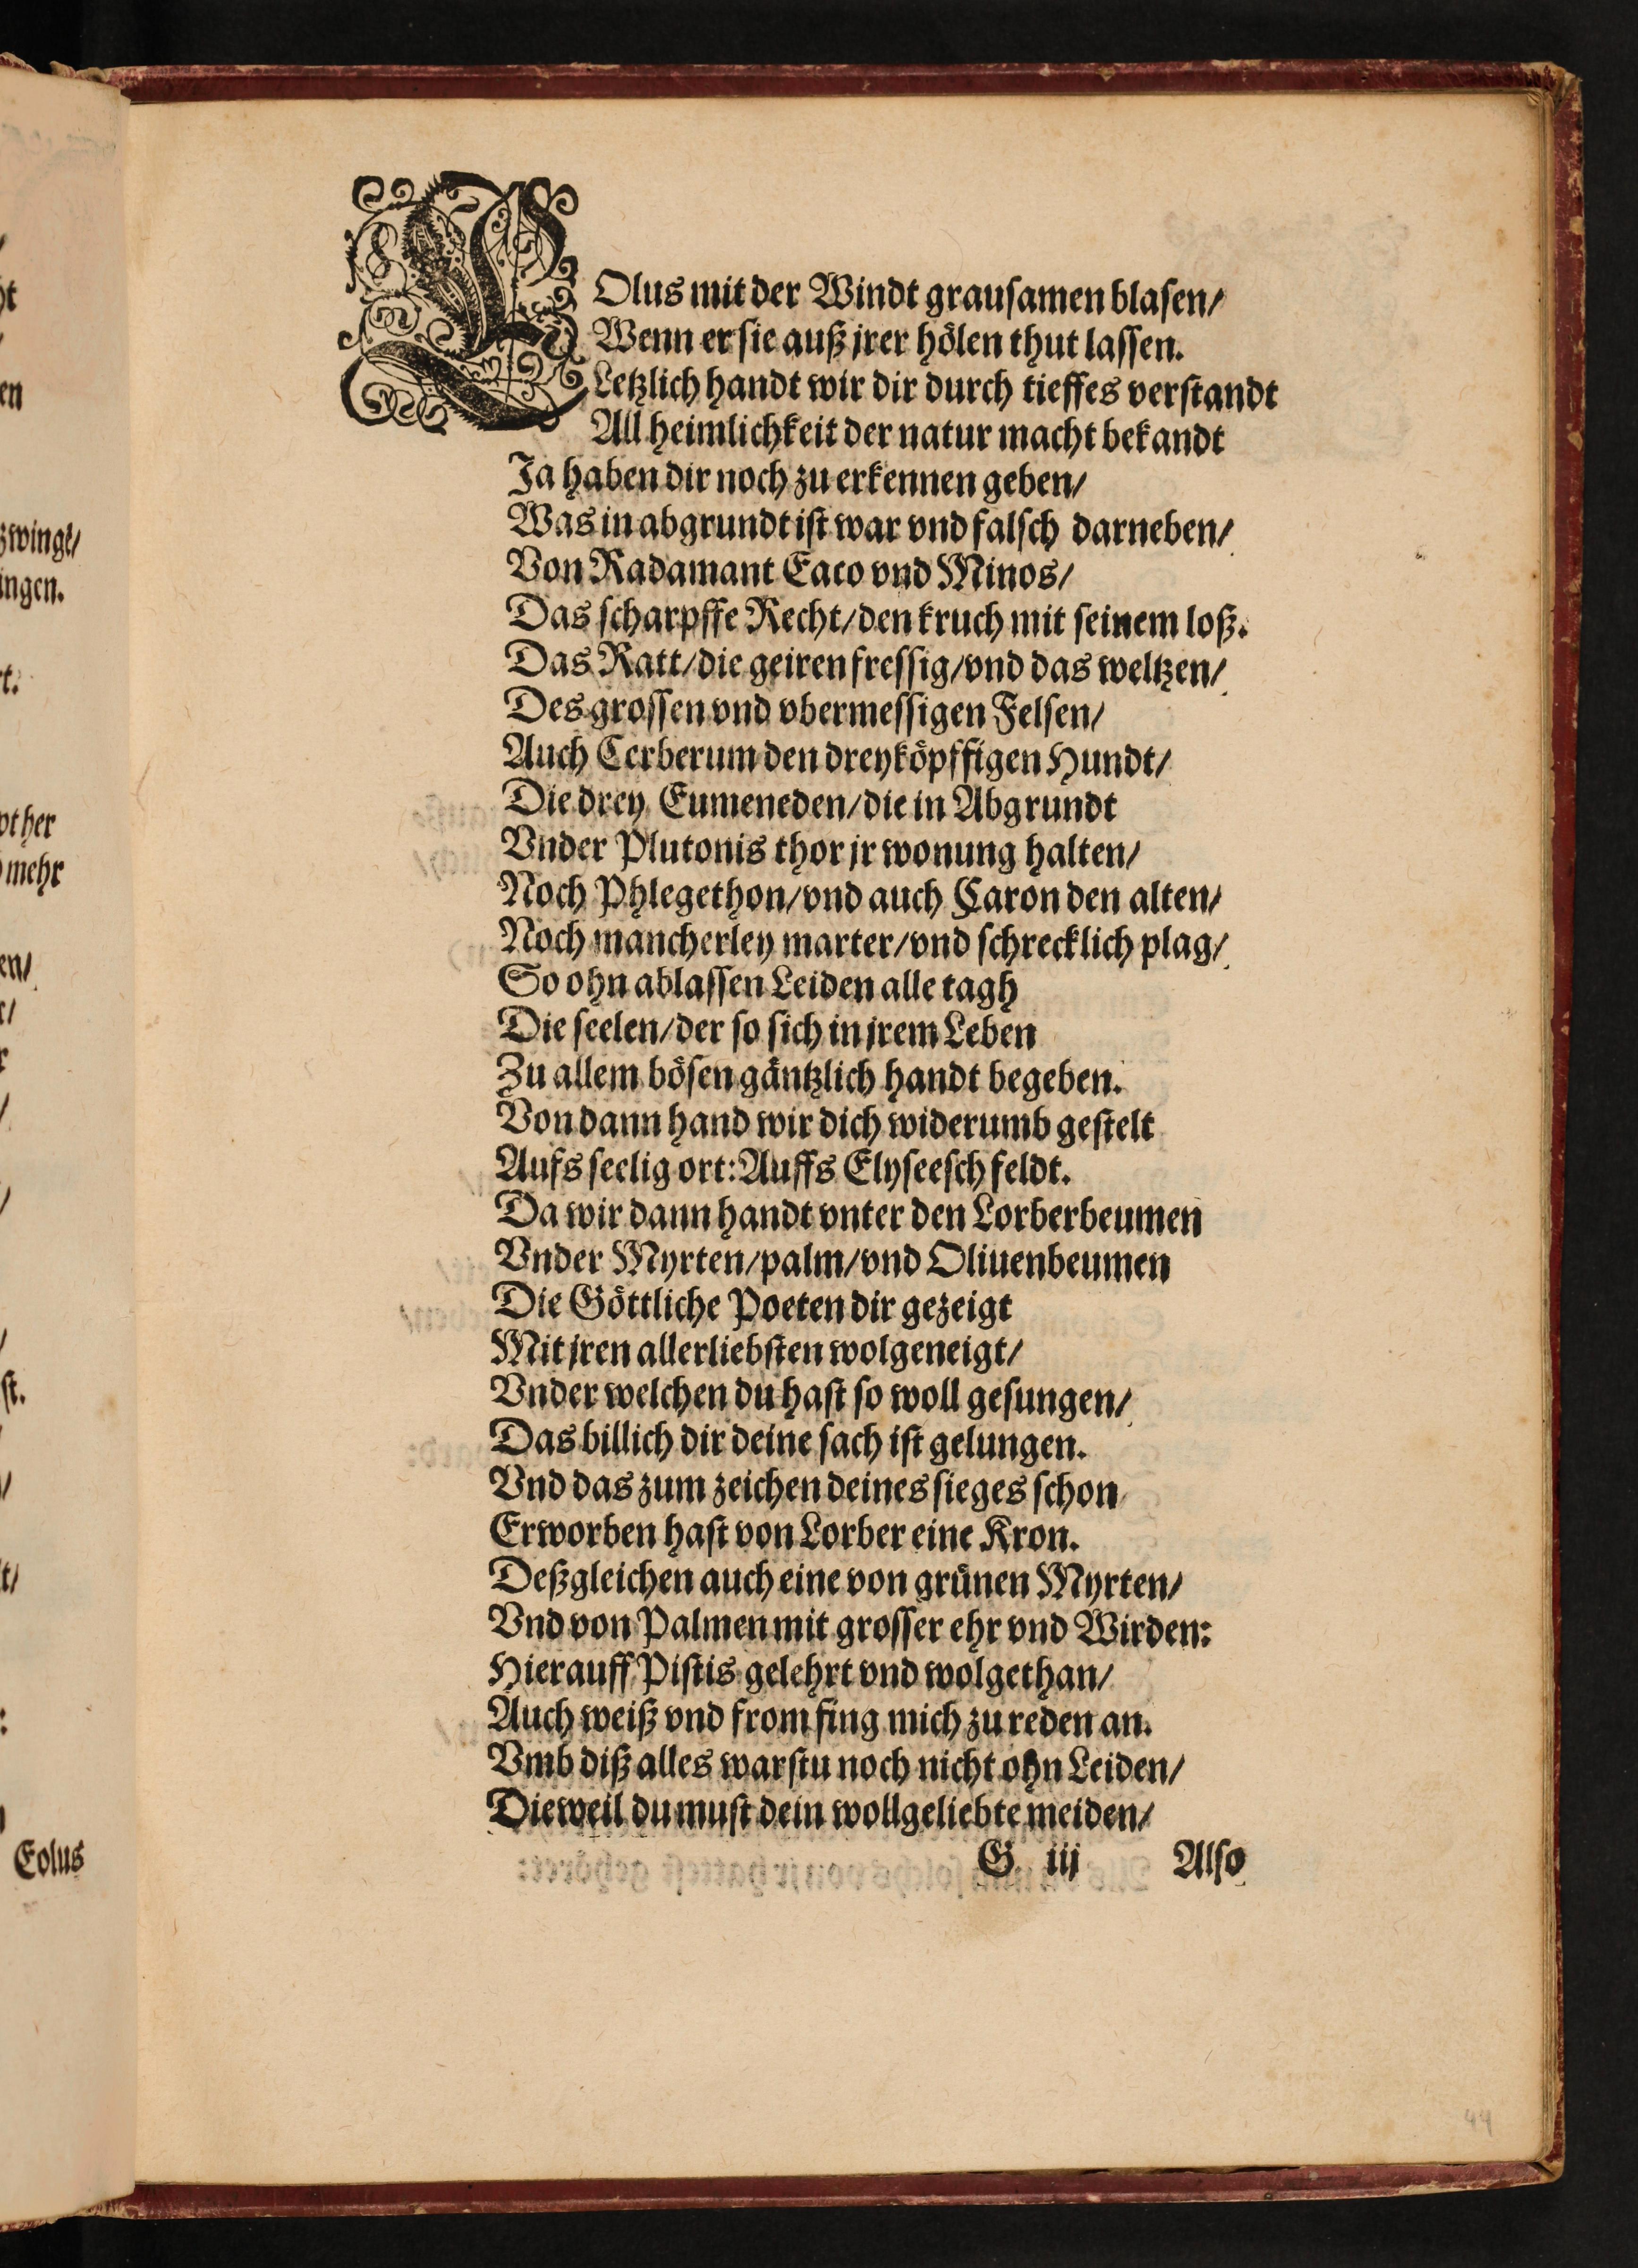 EOlus mit der Windt grausamen blasen/
Wenn er sie auß jrer hölen thut lassen.
Letzlich handt wir dir durch tieffes verstandt
All heimlichkeit der natur macht bekandt
Ja haben dir noch zu erkennen geben/
Was in abgrundt ist war vnd falsch darneben/
Von Radamant Eaco vnd Minos/
Das scharpffe Recht/den kruch mit seinem loß.
Das Ratt/die geiren fressig/vnd das weltzen/
Des grossen vnd vbermessigen Felsen/
Auch Cerberum den dreyköpffigen Hundt/
Die drey Eumeneden/die in Abgrundt
Vnder Plutonis thor jr wonung halten/
Noch Phlegethon/vnd auch Caron den alten/
Noch mancherley marter/vnd schrecklich plag/
So ohn ablassen Leiden alle tagh
Die seelen/der so sich in jrem Leben
Zu allem bösen gäntzlich handt begeben.
Von dann hand wir dich widerumb gestelt
Aufs seelig ort: Auffs Elyseesch feldt.
Da wir dann handt vnter den Lorberbeumen
Vnder Myrten/palm/vnd Oliuenbeumen
Die Göttliche Poeten dir gezeigt
Mit jren allerliebsten wolgeneigt/
Vnder welchen du hast so woll gesungen/
Das billich dir deine sach ist gelungen.
Vnd das zum zeichen deines sieges schon
Erworben hast von Lorber eine Kron.
Deßgleichen auch eine von grünen Myrten/
Vnd von Palmen mit grosser ehr vnd Wirden:
Hierauff Pistis gelehrt vnd wolgethan/
Auch weiß vnd from fing mich zu reden an.
Vmb diß alles warstu noch nicht ohn Leiden/
Dieweil du must dein wollgeliebte meiden/
G iii Also
Eolus
44